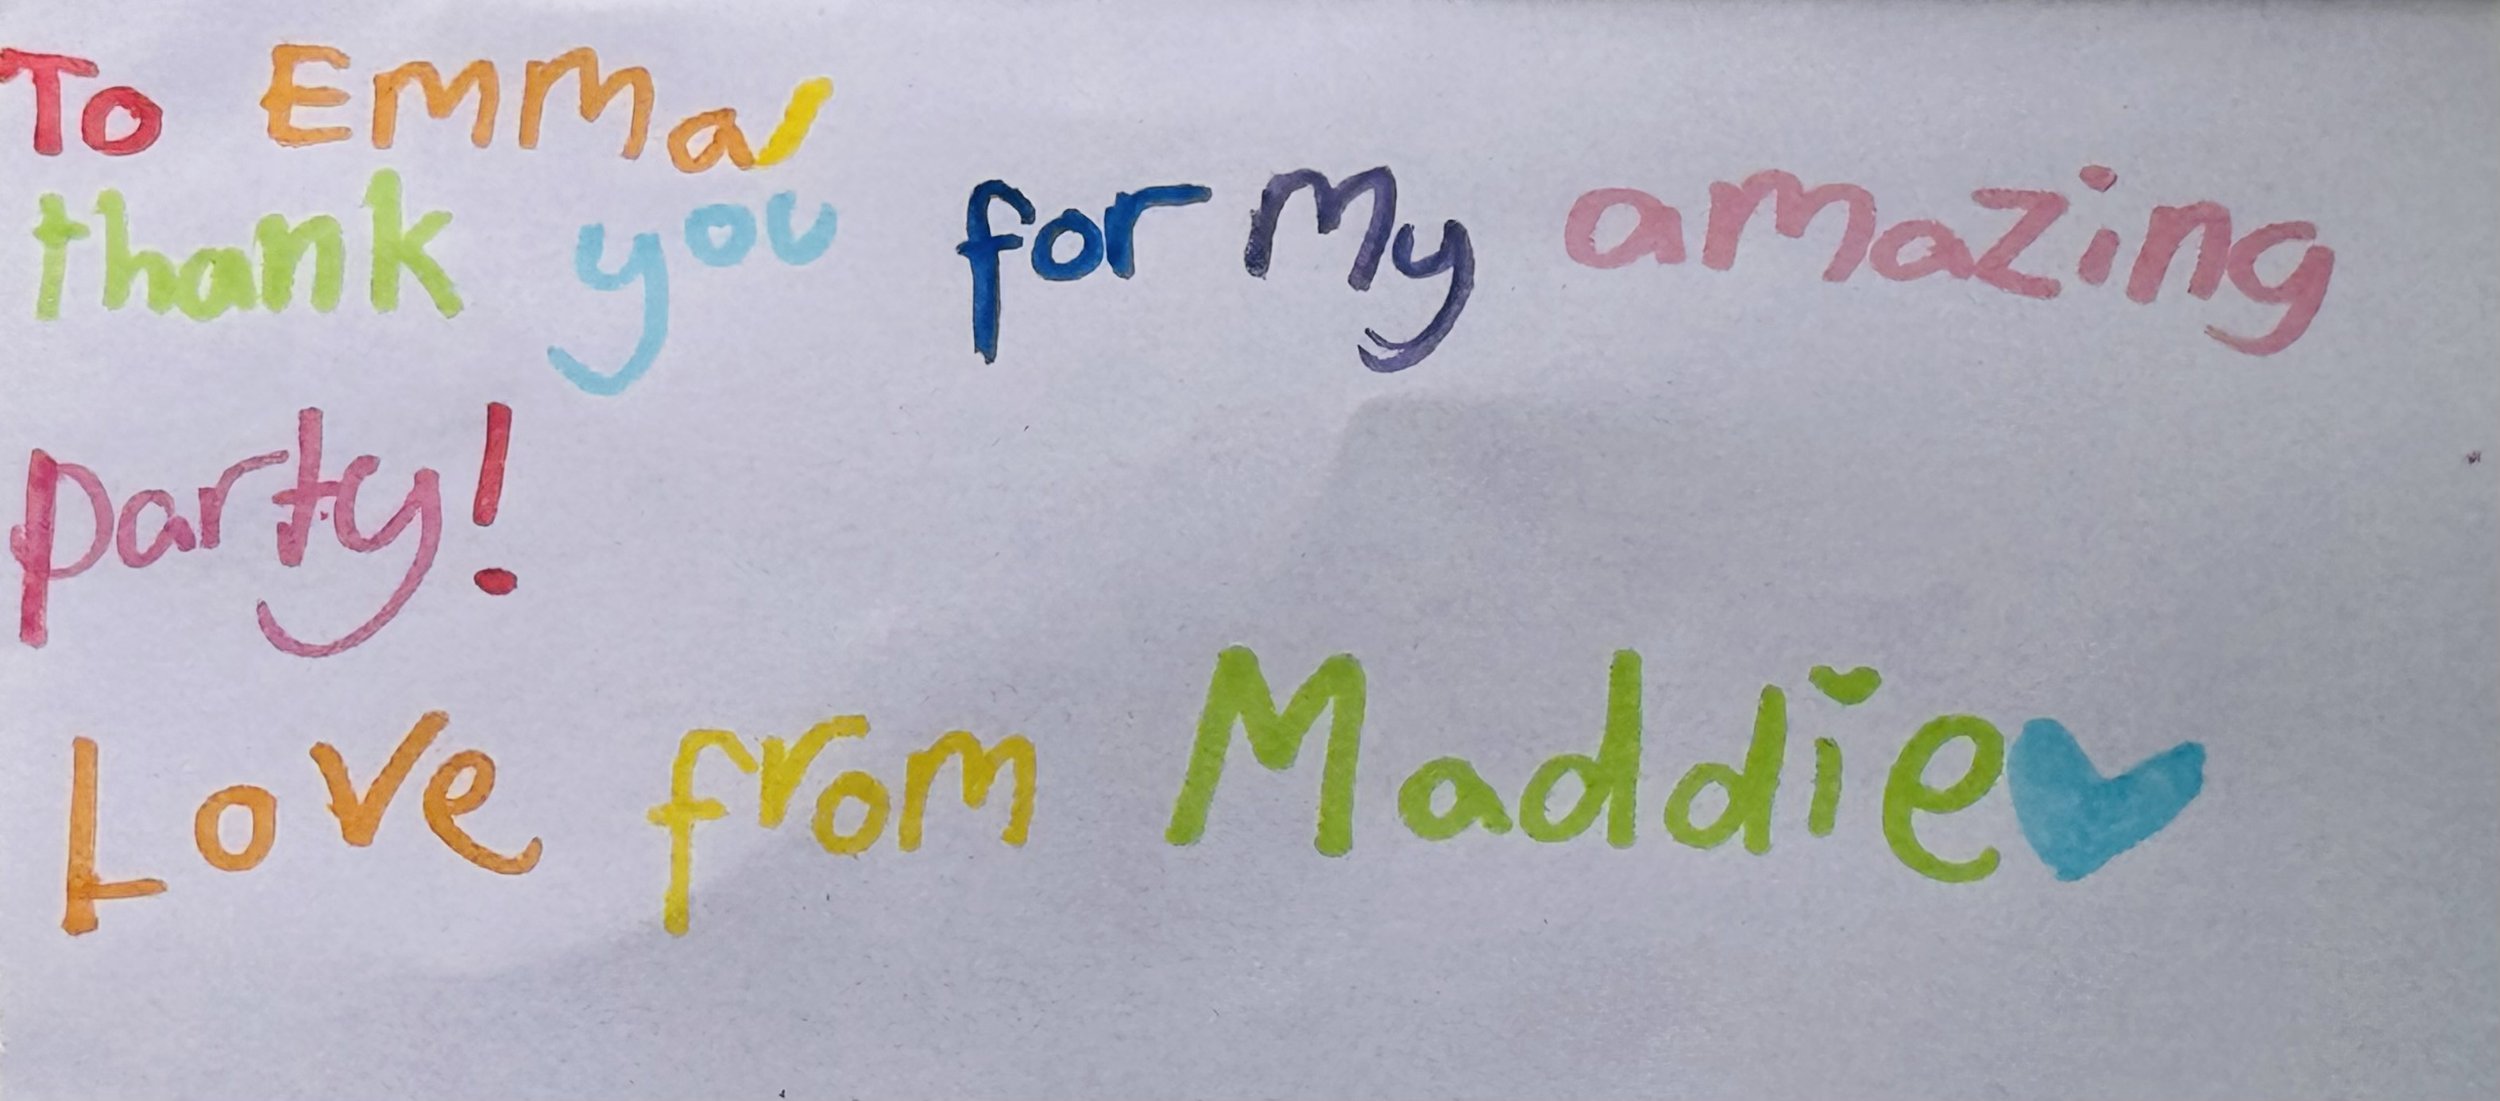 To Emma,
thank you for my amazing
party!
Love from Maddie